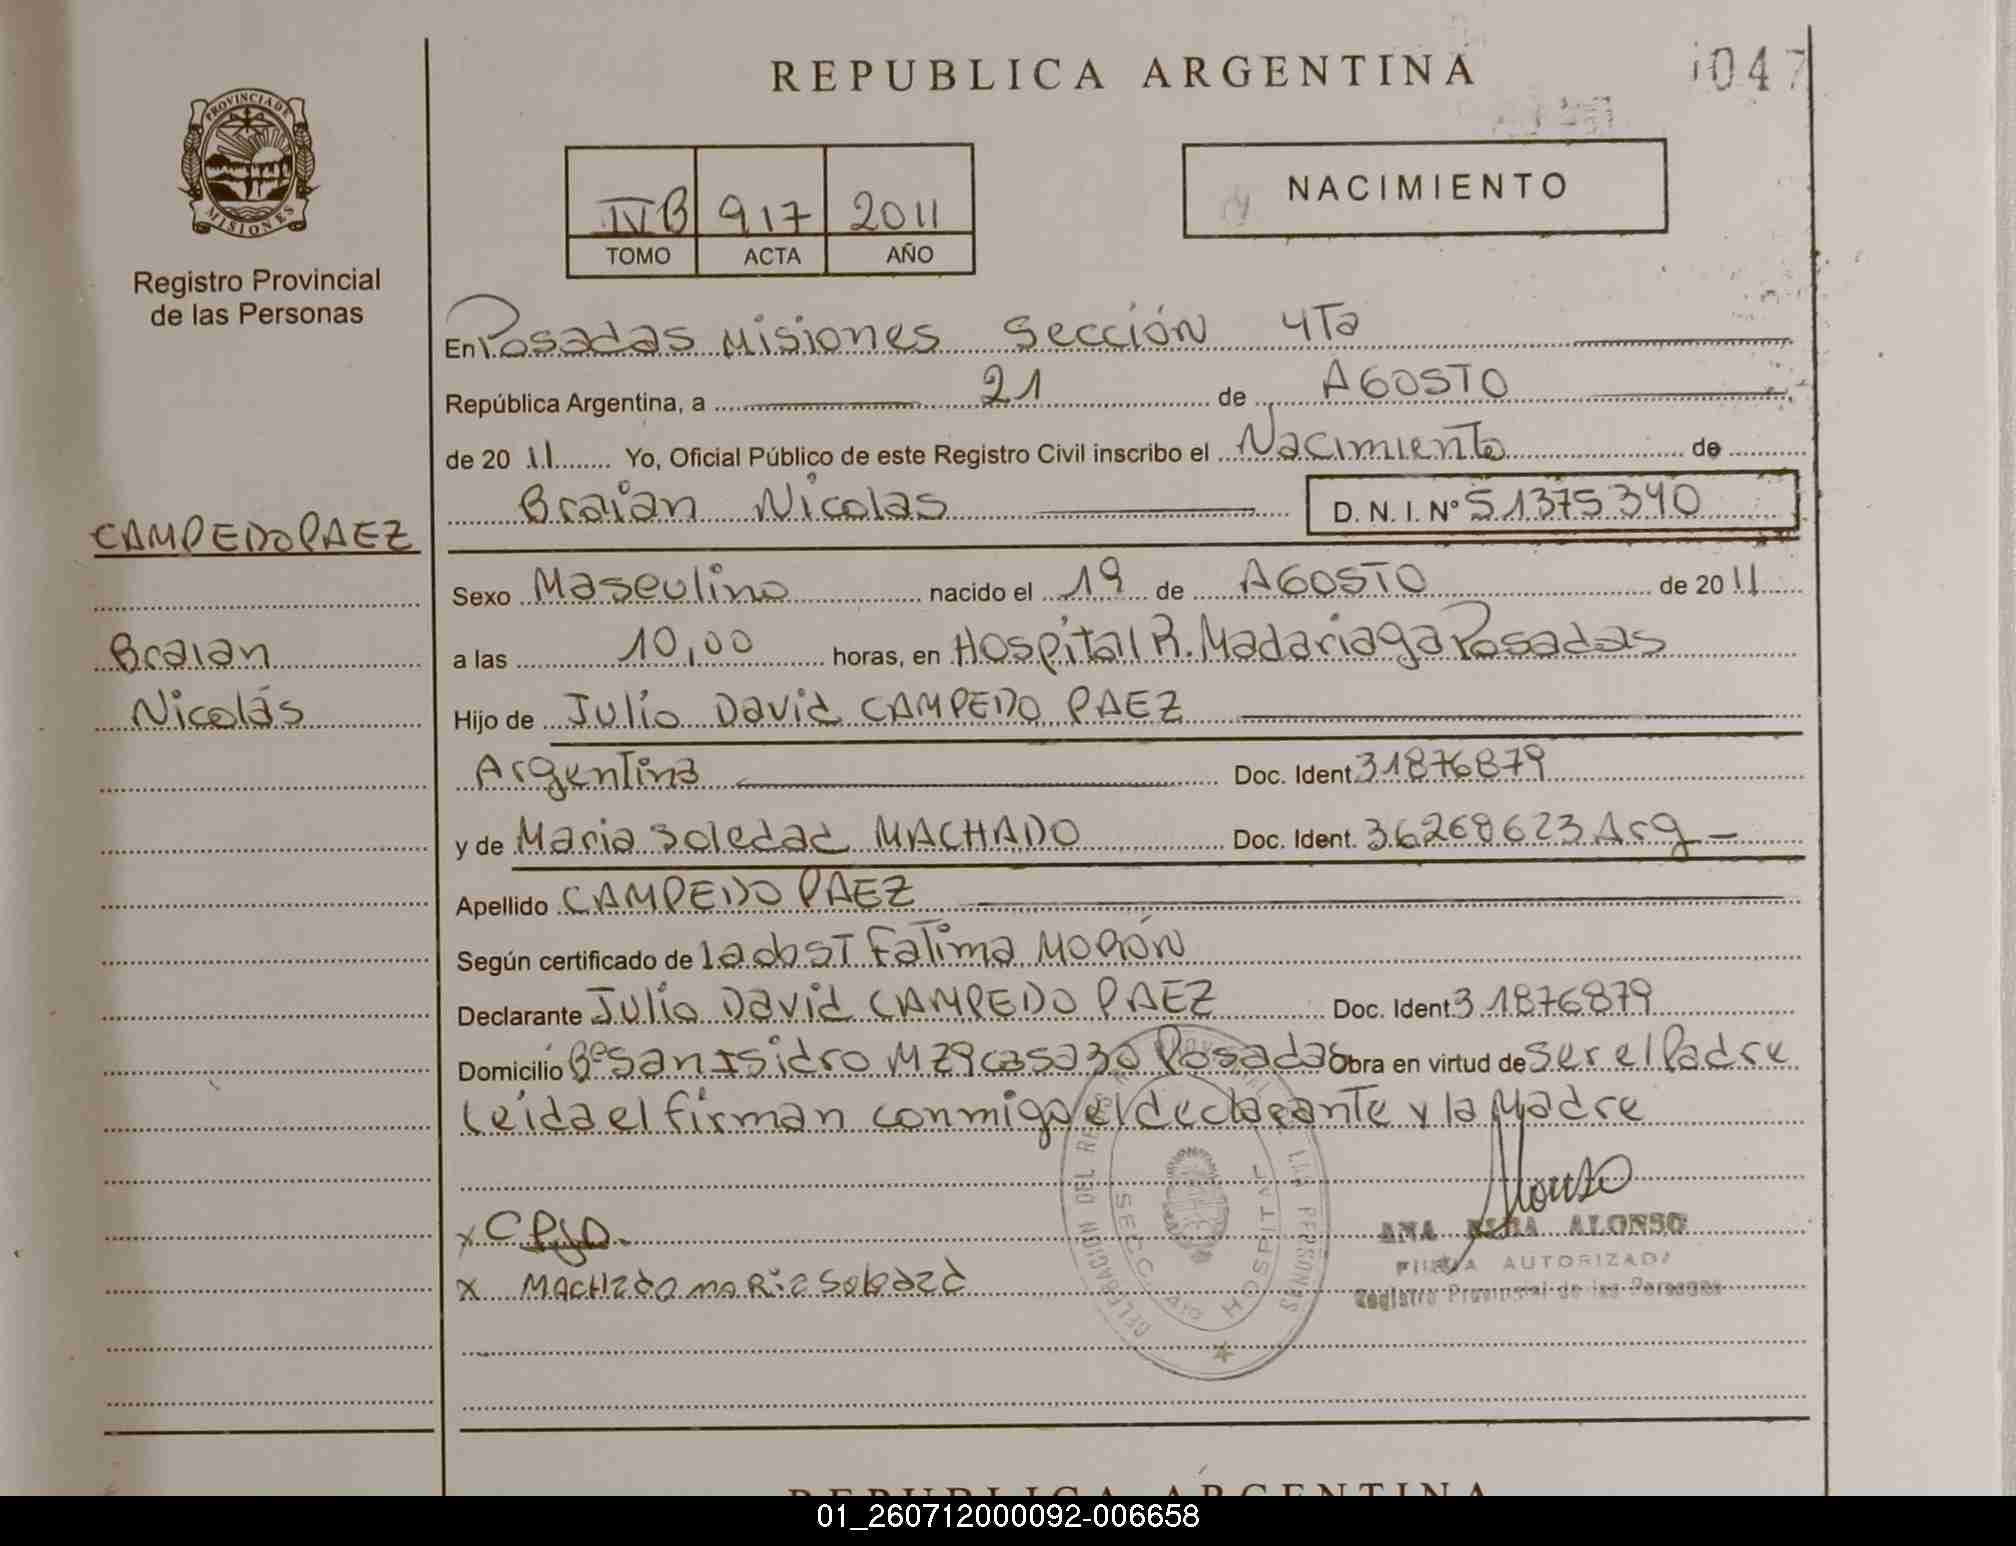 REPUBLICA ARGENTINA
1047
PROVINCIA DE
MISIONES
Registro Provincial
de las Personas
IVB 917 2011
TOMO ACTA AÑO
NACIMIENTO
En Posadas Misiones Sección 4Ta
República Argentina, a 21 de AGOSTO
de 20 11 Yo, Oficial Público de este Registro Civil inscribo el Nacimiento de
Braian Nicolas D. N. I. Nº 51375340
CAMPEDO PAEZ
Braian
Nicolás
Sexo Masculino nacido el 19 de AGOSTO de 20 11
a las 10,00 horas, en Hospital R. Madariaga Posadas
Hijo de Julio David CAMPEDO PAEZ
Argentina Doc. Ident 31876879
y de Maria Soledad MACHADO Doc. Ident. 36268623 Arg
Apellido CAMPEDO PAEZ
Según certificado de la obst Fatima MORÓN
Declarante Julio David CAMPEDO PAEZ Doc. Ident 31876879
Domicilio Bº San Isidro MZ9 casa 30 Posadas Obra en virtud de ser el Padre
Leída el firman conmigo el declarante y la Madre
x
x MACHADO MaRia Soledad
ANA ALONSO
FIRMA AUTORIZADA
Registro Provincial de las Personas
DELEGACION DEL PERSONAS
SECC HOSPITAL
REPUBLICA ARGENTINA
01_260712000092-006658